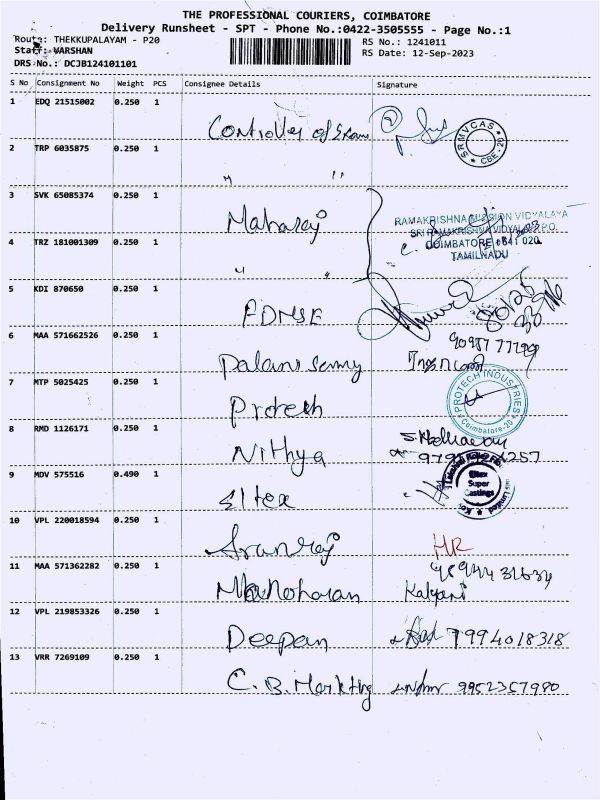 THE PROFESSIONAL COURIERS, COIMBATORE
Delivery Runsheet - SPT - Phone No.:0422-3505555 - Page No.:1
Route: THEKKUPALAYAM - P20
RS No.: 1241011
Staff: VARSHAN
RS Date: 12-Sep-2023
DRS No.: DCJB124101101
S No Consignment No Weight PCS Consignee Details Signature
1 EDQ 21515002 0.250 1
Controller of Exam
SRMVCAS CBE-20
2 TRP 6035875 0.250 1
" "
3 SVK 65085374 0.250 1
Maharaj
RAMAKRISHNA MISSION VIDYALAYA
SRI RAMAKRISHNA VIDYALAYA P.O.
COIMBATORE 641 020
TAMILNADU
4 TRZ 181001309 0.250 1
" "
5 KDI 870650 0.250 1
6 MAA 571662526 0.250 1
Palani Samy
7 MTP 5025425 0.250 1
Protech
PROTECH INDUSTRIES
Coimbatore-20
8 RMD 1126171 0.250 1
Nithya
9 MDV 575516 0.490 1
Eltex
Eltex
Super
Castings
Limited
10 VPL 220018594 0.250 1
Arunraj
HR
11 MAA 571362282 0.250 1
Manoharan Kalyani
12 VPL 219853326 0.250 1
Deepan 7994018318
13 VRR 7269109 0.250 1
C.B. Markting 9952357980